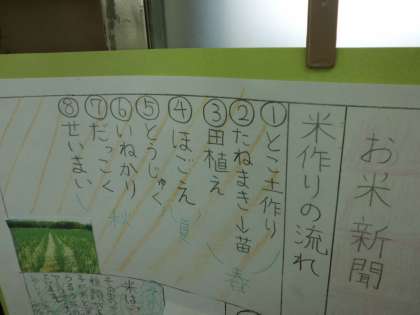 お米新聞
米作りの流れ
①とこ土作り
②たねまき→苗
春
③田植え
④ほごえん
夏
⑤とうじゅく
⑥いねかり
秋
⑦だっこく
⑧せいまい